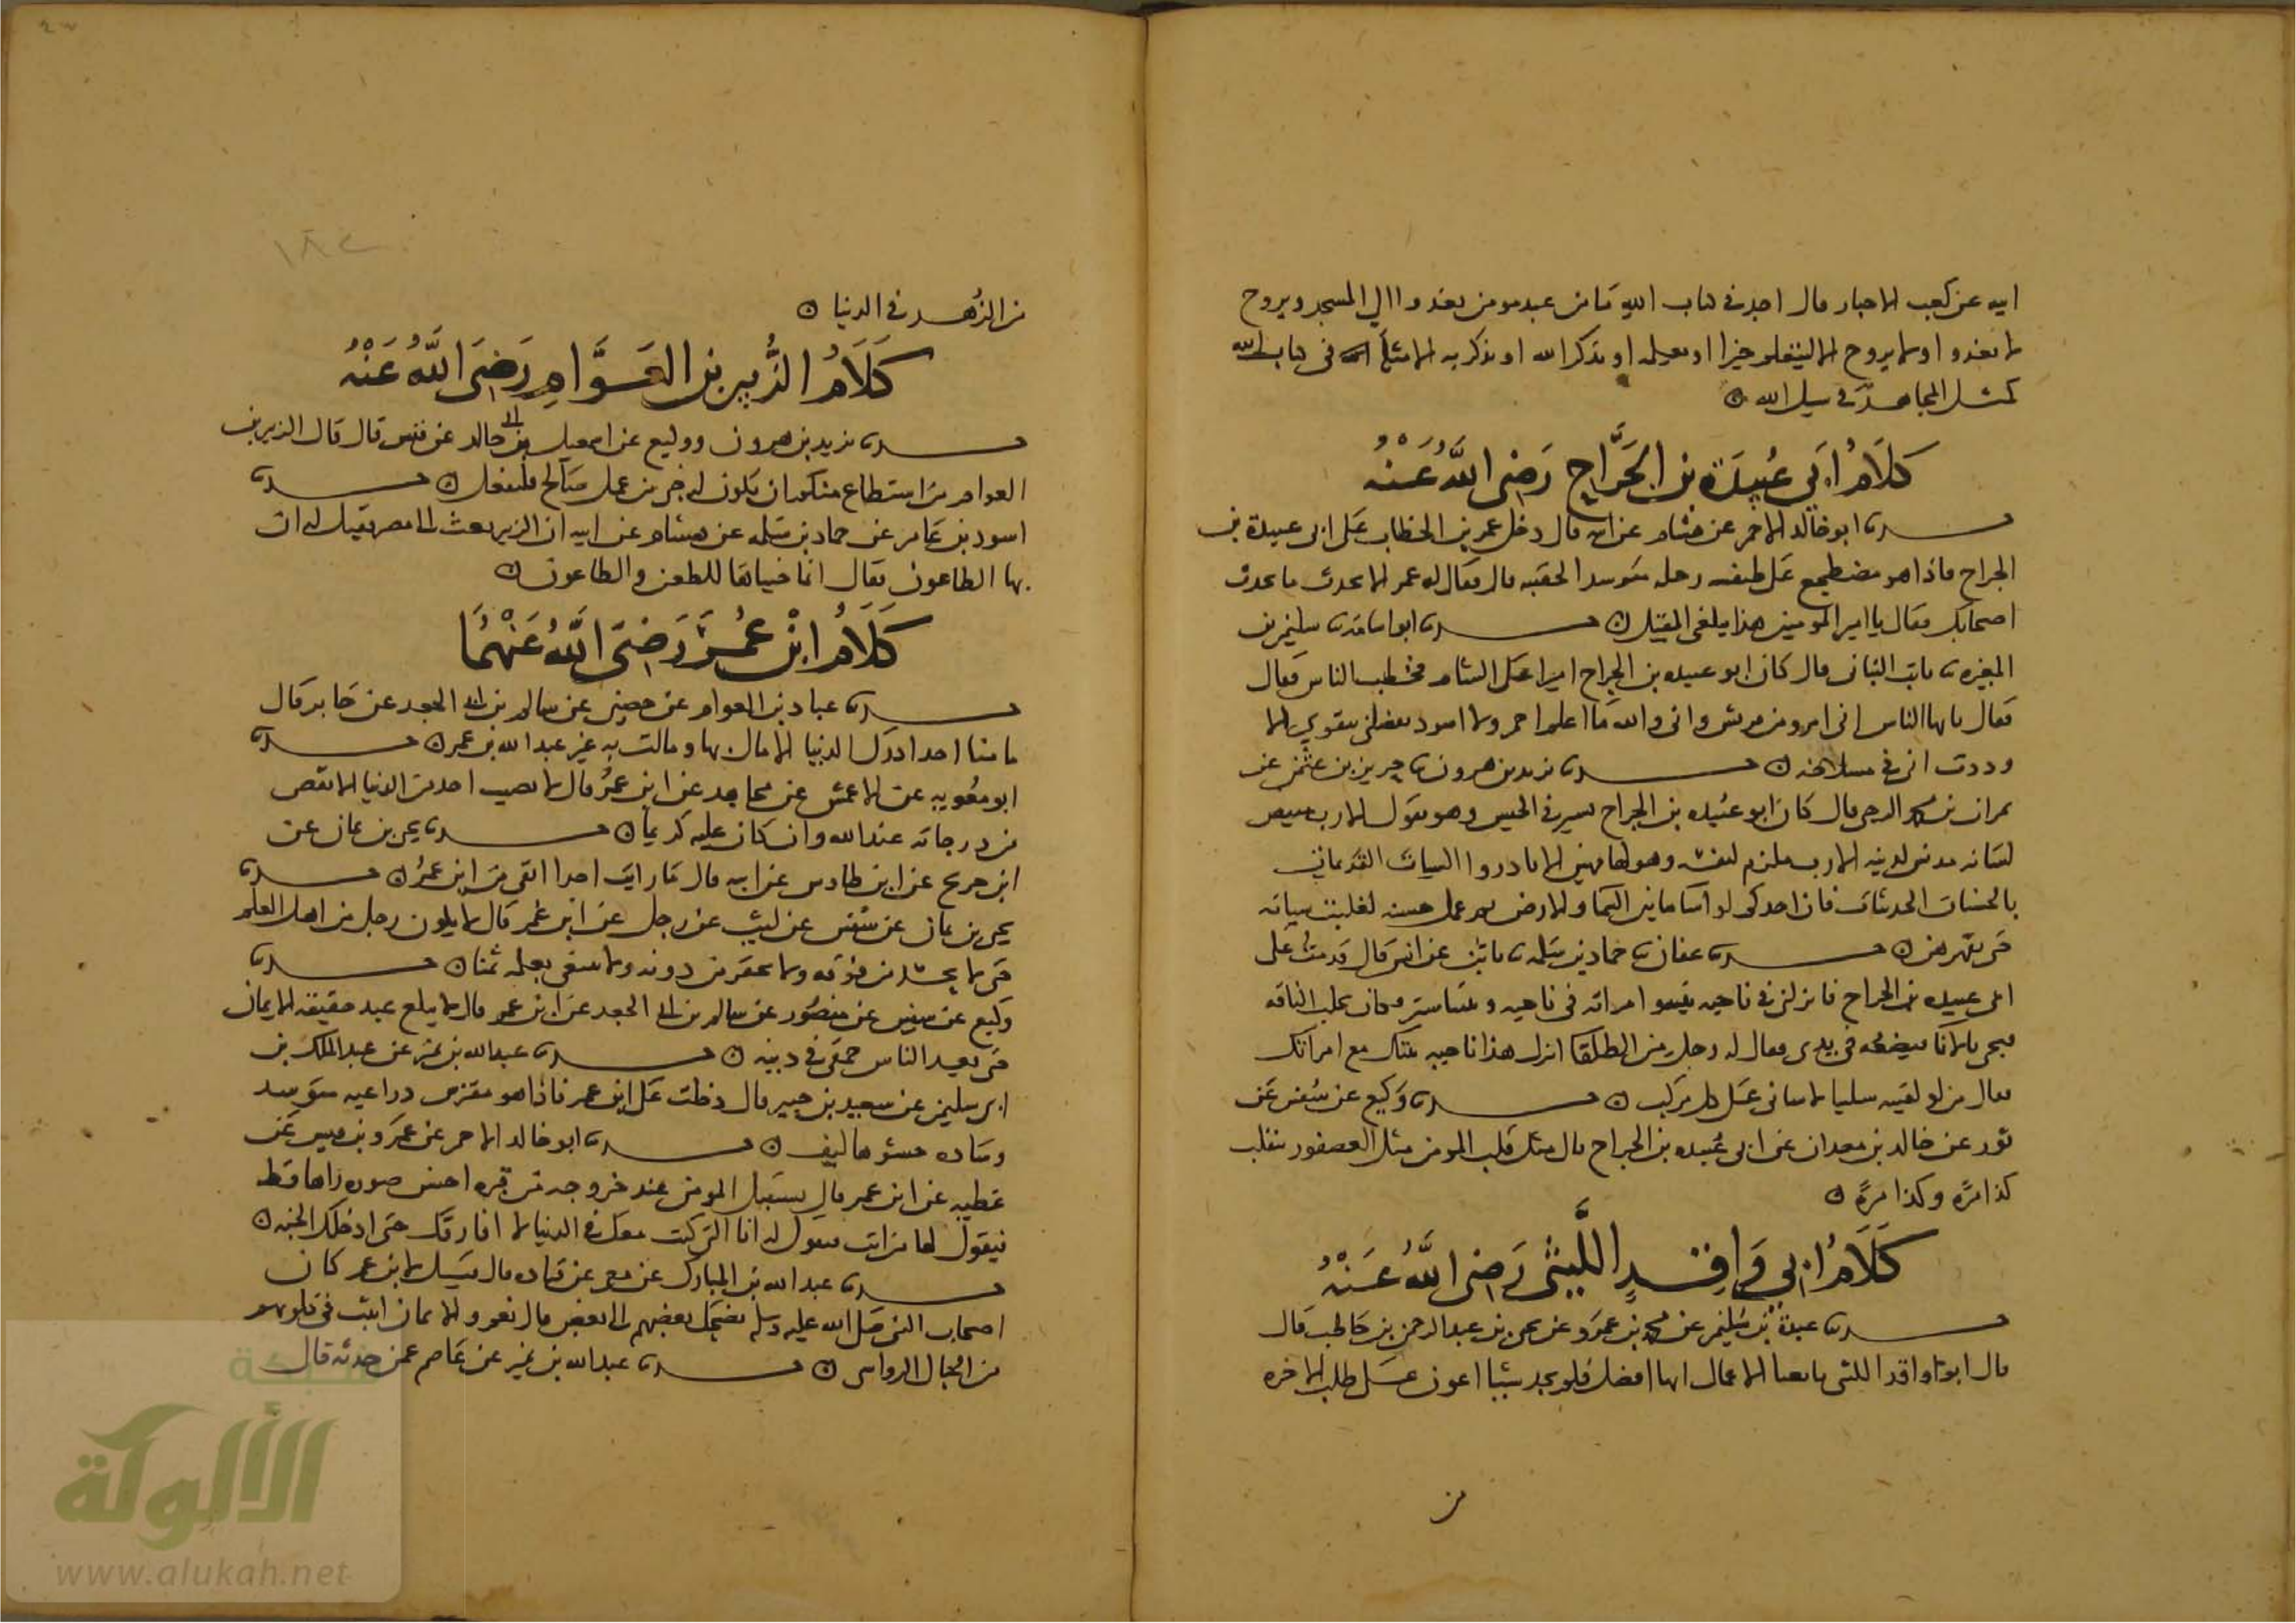 ابيه عن كعب الاحبار قال اجد في كتاب الله ما من عبد مومن يغدوا الي المسجد ويروح
لا يغدوا ولا يروح الا ليتعلم خيرا او يعلمه او يذكر الله او يذكر به الا مثله في كتاب الله
كمثل المجاهد في سبيل الله
كَلَامُ ابي عُبيدَة بن الجَرَّاح رَضى اللَّهُ عَنْهُ
حدثنا ابو خالد الاحمر عن هشام عن ابيه قال دخل عمر بن الخطاب على ابى عبيدة بن
الجراح فاذا هو مضطجع على طنفسه رحله متوسد الحقيبه قال فقال له عمر الا تحدث ما يحدث
اصحابك فقال يا امير المومنين هذا يبلغنى المقيل حدثنا ابو اسامة نا سليمن بن
المغيره نا ثابت البنانى قال كان ابو عبيده بن الجراح اميرا على الشام فخطب الناس فقال
فقال يا يها الناس انى امرو من قريش وانى والله ما اعلم احمر ولا اسود يفضلنى بتقوي الا
وددت انى في مسلاخه حدثنا يزيد بن هرون نا جرير بن عثمن عن
نمران بن مخمر الرحبى قال كان ابو عبيده بن الجراح يسير في الجيش وهو يقول الا رب مبيض
لثيابه مدنس لدينه الا رب مكرم لنفسه وهو لها مهين الا بادروا السيات القديمات
بالحسنات الحديثات فان احدكم لو اسا ما بين السما والارض ثم عمل حسنه لغلبت سياته
حتى تقهرهن حدثنا عفان نا حماد بن سلمه نا ثابت عن انس قال قدمت على
ابى عبيده بن الجراح فانزلنى في ناحيه بيته وامراته في ناحيه وبيننا ستر وكان يحلب الناقه
فيجى بالانا فيضعه في يدى فقال له رجل من الطلقا انزل هذا ناحيه بيتك مع امراتك
فقال من لو لقيه سليبا لاسانى على كل مركب حدثنا وكيع عن سفين عن
ثور عن خالد بن معدان عن ابى عبيده بن الجراح قال مثل قلب المومن مثل العصفور يتقلب
كذا مرة وكذا مرة
كَلَامُ ابي وَاقِدٍ اللَّيثى رَضى اللَّهُ عَنْهُ
حدثنا عبدة بن سليمن عن محمد بن عمرو عن يحى بن عبد الرحمن بن حاطب قال
قال ابو واقد الليثى تابعنا الاعمال ايها افضل فلم نجد شيئا اعون على طلب الاخره
من
من الزهد في الدنيا
كَلَامُ الزُّبير بن العَوَّامِ رَضىَ اللَّهُ عَنْهُ
حدثنا يزيد بن هرون ووكيع عن اسمعيل بن ابى خالد عن قيس قال قال الزبير بن
العوام من استطاع منكم ان يكون له خبى من عمل صالح فليفعل حدثنا
اسود بن عامر عن حماد بن سلمه عن هشام عن ابيه ان الزبير بعث الى مصر فقيل له ان
بها الطاعون فقال انما جيناها للطعن والطاعون
كَلَامُ ابْن عُمَرَ رَضىَ اللَّهُ عَنْهُمَا
حدثنا عباد بن العوام عن حصين عن سالم بن ابى الجعد عن جابر قال
ما منا احد ادرك الدنيا الا مال بها ومالت به غير عبد الله بن عمر حدثنا
ابو معويه عن الاعمش عن مجاهد عن ابن عمر قال لا يصيب احد من الدنيا الا نقص
من درجاته عند الله وان كان عليه كريما حدثنا يحى بن يمان عن
ابن جريج عن ابن طاوس عن ابيه قال ما رايت احدا اتقى من ابن عمر حدثنا
يحى بن يمان عن سفين عن ليث عن رجل عن ابن عمر قال لا يكون رجل من اهل العلم
حتى لا يحسد من فوقه ولا يحقر من دونه ولا يبتغى بعلمه ثمنا حدثنا
وكيع عن سفين عن منصور عن سالم بن ابى الجعد عن ابن عمر قال لا يبلغ عبد حقيقه الايمان
حتى يعد الناس حمقى في دينه حدثنا عبد الله بن نمير عن عبد الملك بن
ابى سليمن عن سعيد بن جبير قال دخلت على ابن عمر فاذا هو مفترش ذراعيه متوسد
وساده حشوها ليف حدثنا ابو خالد الاحمر عن عمرو بن قيس عن
عطيه عن ابن عمر قال يستقبل المومن عند خروجه من قبره احسن صوره راها قط
فيقول لها من انت فتقول له انا التى كنت معك في الدنيا لا افارقك حتى ادخلك الجنه
حدثنا عبد الله بن المبارك عن معمر عن قتاده قال سيل ابن عمر كان
اصحاب النبى صلى الله عليه وسلم يضحك بعضهم الى بعض قال نعم والايمان اثبت في قلوبهم
من الجبال الرواسى حدثنا عبد الله بن نمير عن عاصم عمن حدثه قال
شبكة
الألوكة
www.alukah.net